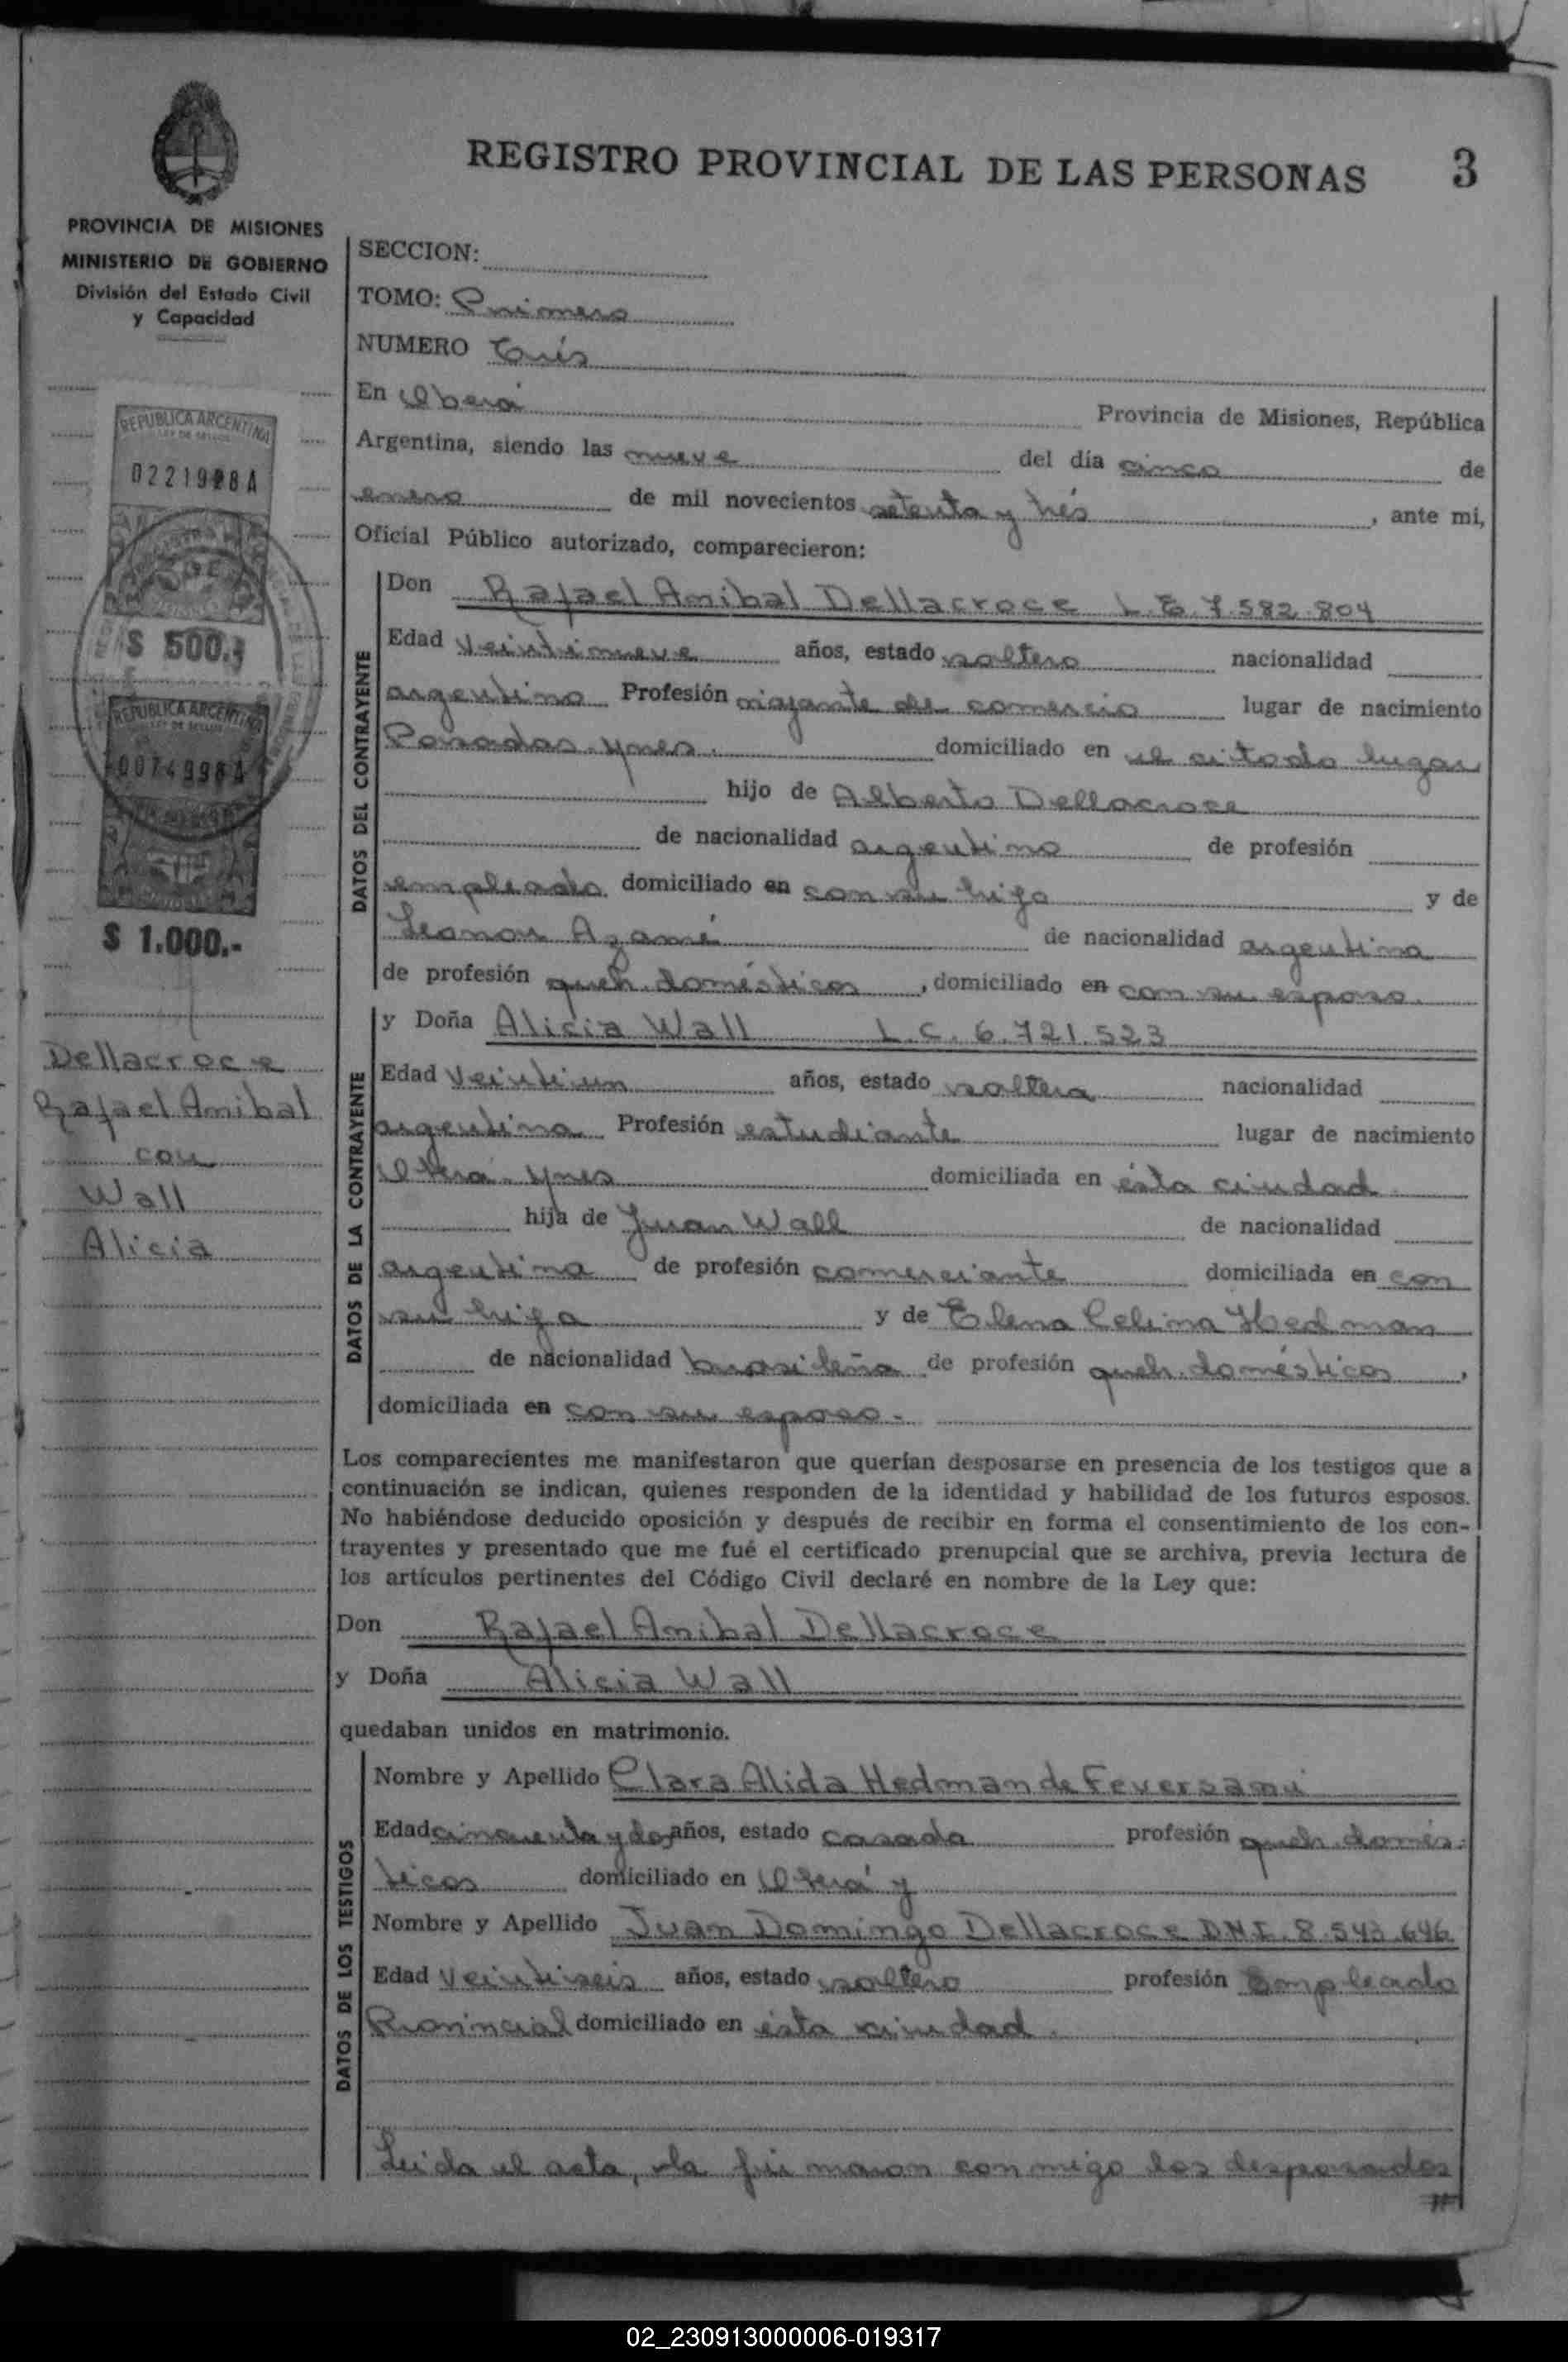 REGISTRO PROVINCIAL DE LAS PERSONAS 3
PROVINCIA DE MISIONES
MINISTERIO DE GOBIERNO
División del Estado Civil
y Capacidad
REPUBLICA ARGENTINA
LEY DE SELLOS
0221998A
$ 500.-
REPUBLICA ARGENTINA
0074998A
$ 1.000.-
Dellacroce
Rafael Anibal
con
Wall
Alicia
SECCION:
TOMO: Primero
NUMERO Trés
En Oberá Provincia de Misiones, República
Argentina, siendo las nueve del día cinco de
enero de mil novecientos setenta y trés, ante mi,
Oficial Público autorizado, comparecieron:
DATOS DEL CONTRAYENTE
Don Rafael Anibal Dellacroce L.E 7.582.804
Edad veintinueve años, estado soltero nacionalidad
argentino Profesión viajante de comercio lugar de nacimiento
Posadas. Mnes. domiciliado en el citado lugar
hijo de Alberto Dellacroce
de nacionalidad argentino de profesión
empleado domiciliado en con su hijo y de
Leonor Azamé de nacionalidad argentina
de profesión queh. domésticos, domiciliado en con su esposo.
DATOS DE LA CONTRAYENTE
y Doña Alicia Wall L.C. 6.721.523
Edad veintiun años, estado soltera nacionalidad
argentina Profesión estudiante lugar de nacimiento
Oberá. Mnes domiciliada en ésta ciudad.
hija de Juan Wall de nacionalidad
argentina de profesión comerciante domiciliada en con
su hija y de Elena Celina Hedman
de nacionalidad brasileña de profesión queh. domésticos,
domiciliada en con su esposo.-
Los comparecientes me manifestaron que querían desposarse en presencia de los testigos que a
continuación se indican, quienes responden de la identidad y habilidad de los futuros esposos.
No habiéndose deducido oposición y después de recibir en forma el consentimiento de los con-
trayentes y presentado que me fué el certificado prenupcial que se archiva, previa lectura de
los artículos pertinentes del Código Civil declaré en nombre de la Ley que:
Don Rafael Anibal Dellacroce
y Doña Alicia Wall
quedaban unidos en matrimonio.
DATOS DE LOS TESTIGOS
Nombre y Apellido Clara Alida Hedman de
Edad cincuenta y dos años, estado casada profesión queh. domés-
ticos domiciliado en Oberá y
Nombre y Apellido Juan Domingo Dellacroce DNI. 8.543.646
Edad veintiseis años, estado soltero profesión Empleado
Provincial domiciliado en ésta ciudad.
Leida el acta, la firmaron conmigo los desposados
02_230913000006-019317